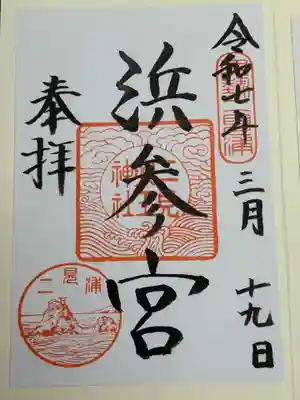 令和七年
三月
十九日
浜参宮
奉拝
二見
神社
二見浦